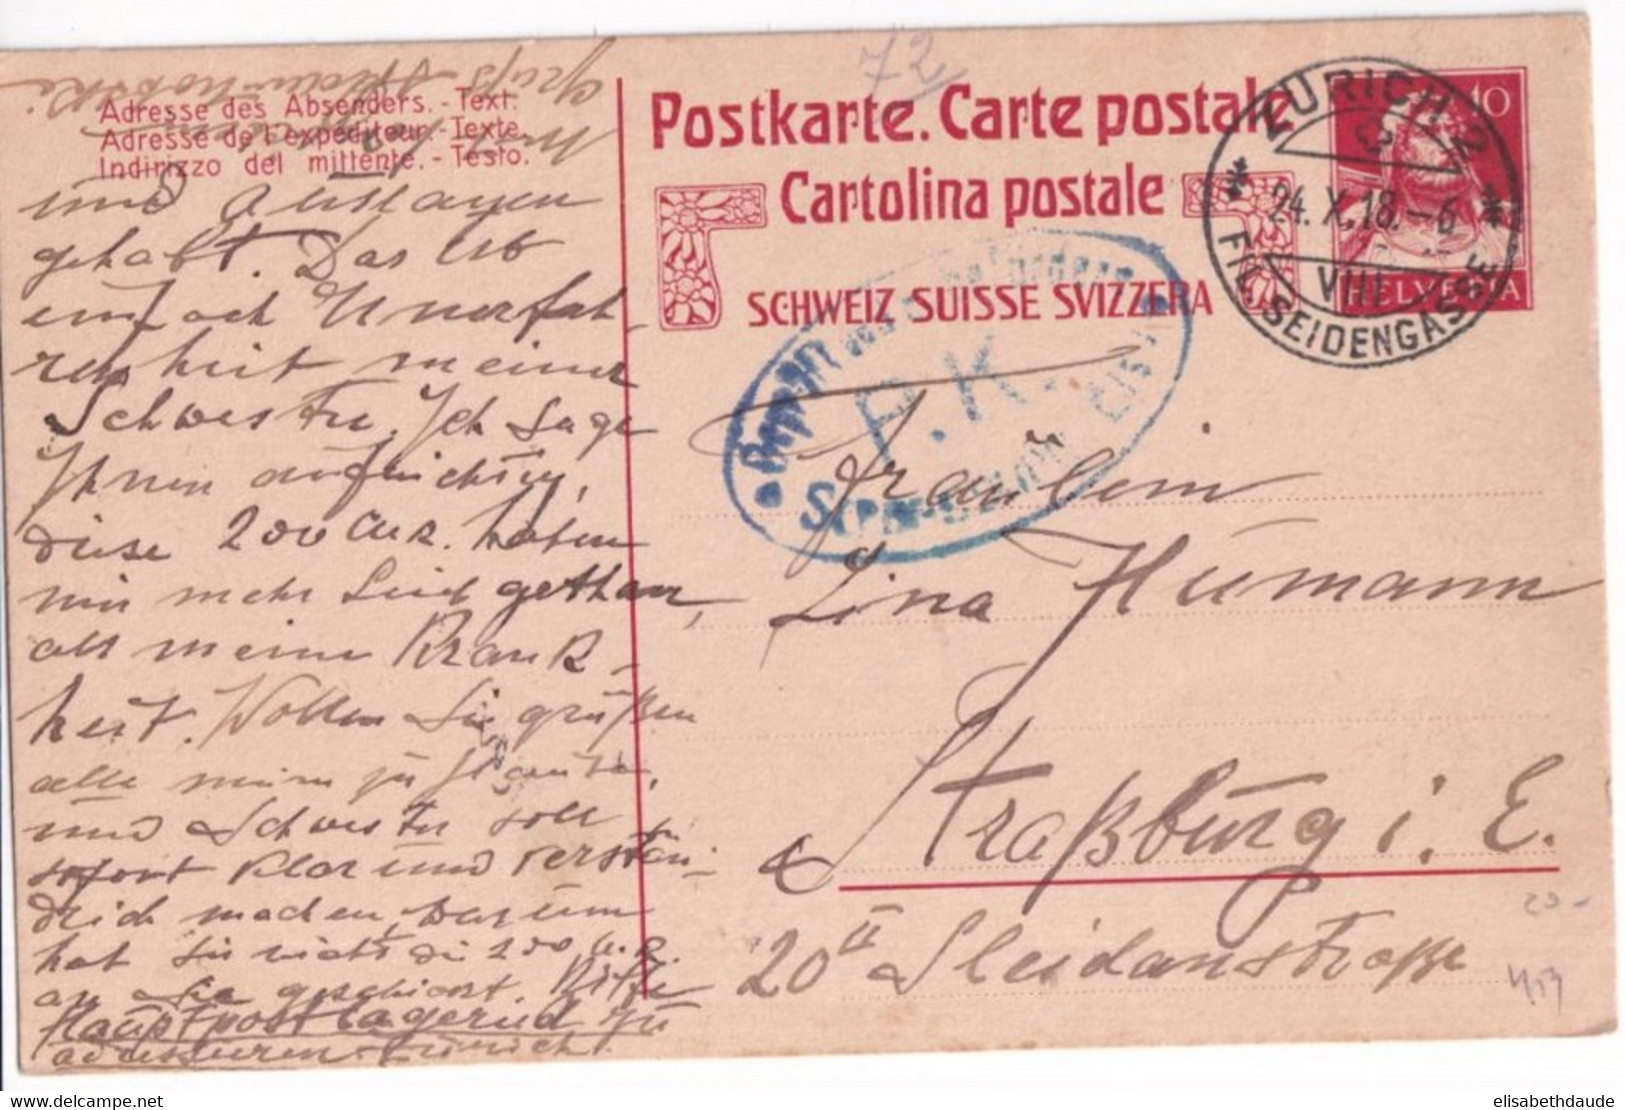 72
Postkarte. Carte postale
Cartolina postale
SCHWEIZ SUISSE SVIZZERA
Adresse des Absenders. - Text.
Adresse de l'expéditeur. - Texte.
Indirizzo del mittente. - Testo.
ZÜRICH 2
24. X. 18. - 6
VIII
FIL. SEIDENGASSE
10
HELVETIA
P. K.
und Auslagen
gehabt. Das ist
einfach Unerfah-
renheit meiner
Schwester. Ich sage
Ihnen aufrichtig,
diese 200 haben
mir mehr Leid gethan,
als meine Krank-
heit. Wollen Sie grüßen
alle
und Schwester soll
sofort klar und verstän-
dlich machen, warum
hat sie nicht die 200
an Sie geschickt. Bitte
Hauptpostlagernd zu
adressieren Zürich.
Gruß
Fräulein
Lina Humann
Straßburg i. E.
20 II Sleidanstraße
20-
elisabethdaude